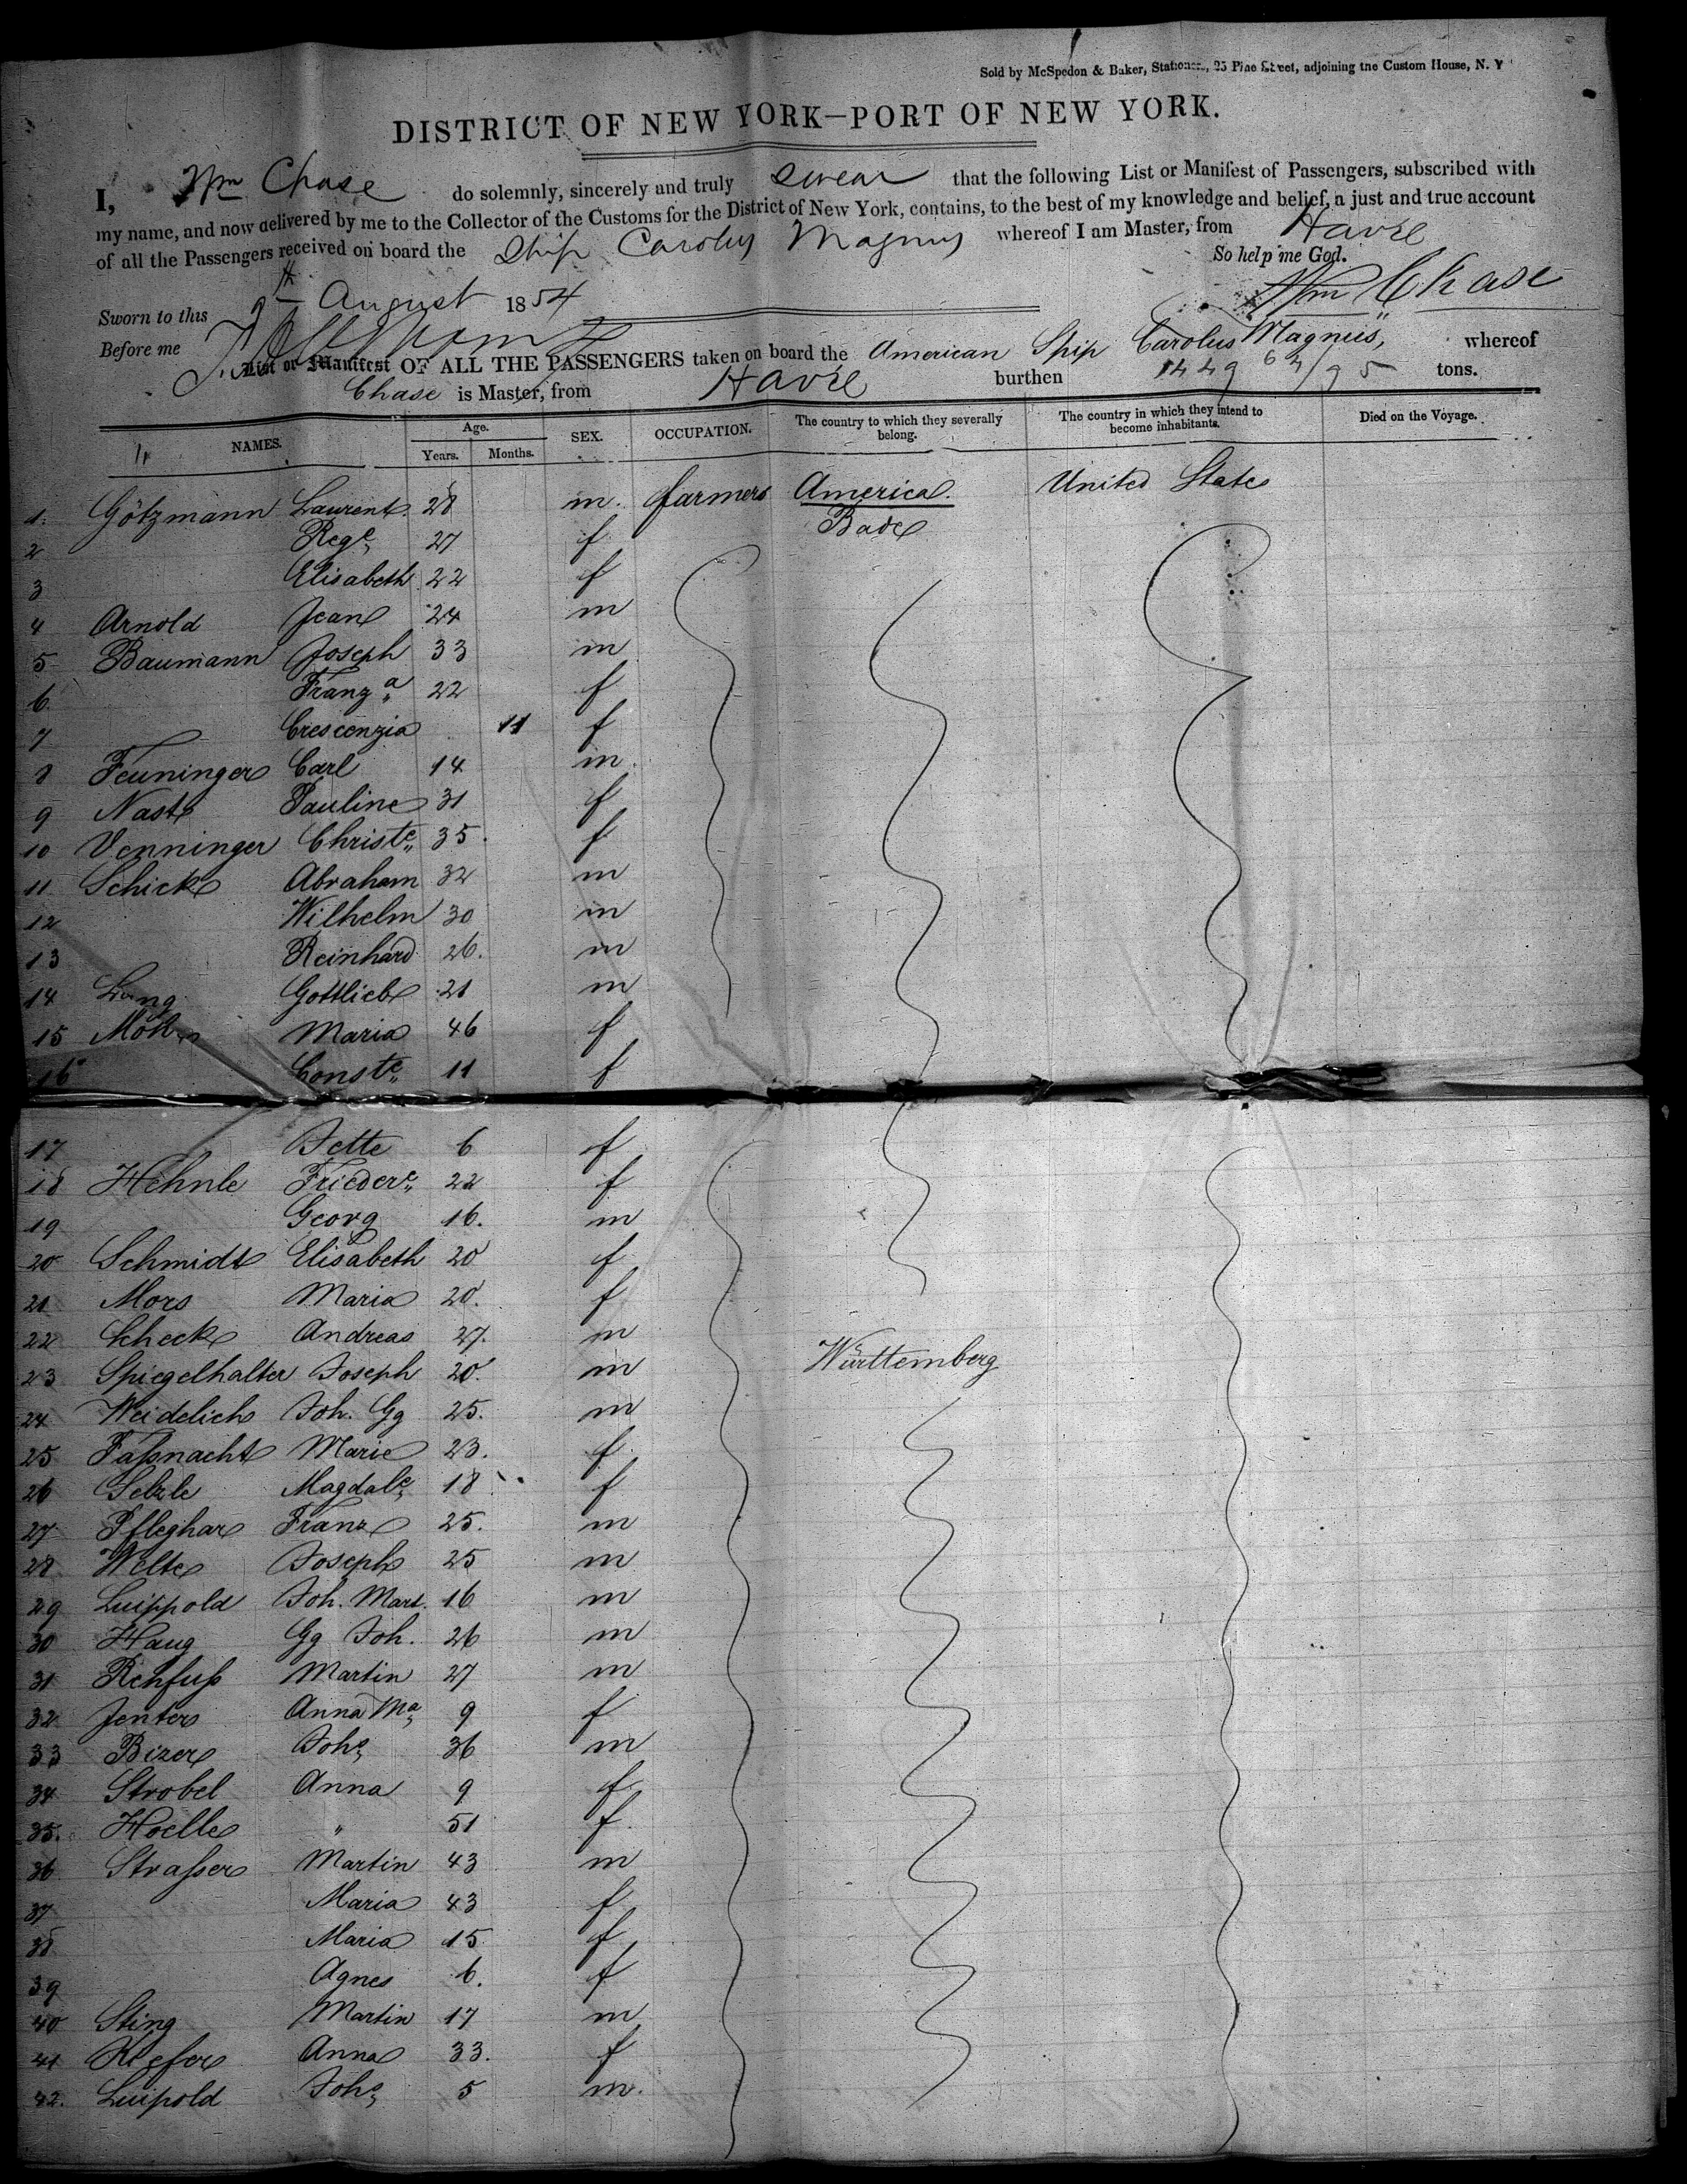 Sold by McSpedon & Baker, Stationers, 25 Pine Street, adjoining the Custom House, N. Y
DISTRICT OF NEW YORK—PORT OF NEW YORK.
I, Wm Chase do solemnly, sincerely and truly swear that the following List or Manifest of Passengers, subscribed with
my name, and now delivered by me to the Collector of the Customs for the District of New York, contains, to the best of my knowledge and belief, a just and true account
of all the Passengers received on board the Ship Carolus Magnus whereof I am Master, from Havre
So help me God.
Sworn to this 9th August 1854 Wm Chase
Before me
List or Manifest OF ALL THE PASSENGERS taken on board the American Ship Carolus Magnus", whereof
Chase is Master, from Havre burthen 1449 64/95 tons.
NAMES. Age. Years. Months. SEX. OCCUPATION. The country to which they severally belong. The country in which they intend to become inhabitants. Died on the Voyage.
1. Götzmann Laurent. 28 m. farmers America. United States
2 Rege 27 f Bade
3 Elisabeth 22 f
4 Arnold Jean 24 m
5 Baumann Joseph 33 m
6 Franz a 22 f
7 Crescenzia 11 f
8 Feuninger Carl 14 m
9 Nast Pauline 31 f
10 Venninger Christe 35. f
11 Schick Abraham 32 m
12 Wilhelm 30 m
13 Reinhard 26. m
14 Lang Gottlieb 21 m
15 Möhr Maria 46 f
16 Conste 11 f
17 Jette 6 f
18 Hehnle Friedere 22 f
19 Georg 16. m
20 Schmidt Elisabeth 20 f
21 Mors Maria 20. f
22 Scheck Andreas 27. m
23 Spiegelhalter Joseph 20. m Württemberg
24 Weidelich Joh. Gg 25. m
25 Faßnacht Marie 23. f
26 Selzle Magdale 18 f
27 Pfleghar Franz 25. m
28 Welte Joseph 25 m
29 Luippold Joh. Mart. 16 m
30 Haug Gg Joh. 26 m
31 Rehfuß Martin 27 m
32 Jenter Anna Ma 9 f
33 Bizer Johs 36 m
34 Strobel Anna 9 f
35. Hoelle " 51 f
36 Straßer Martin 43 m
37 Maria 43 f
38 Maria 15 f
39 Agnes 6. f
40 Sting Martin 17 m
41 Kiefer Anna 33. f
42. Luipold Johs 5 m.